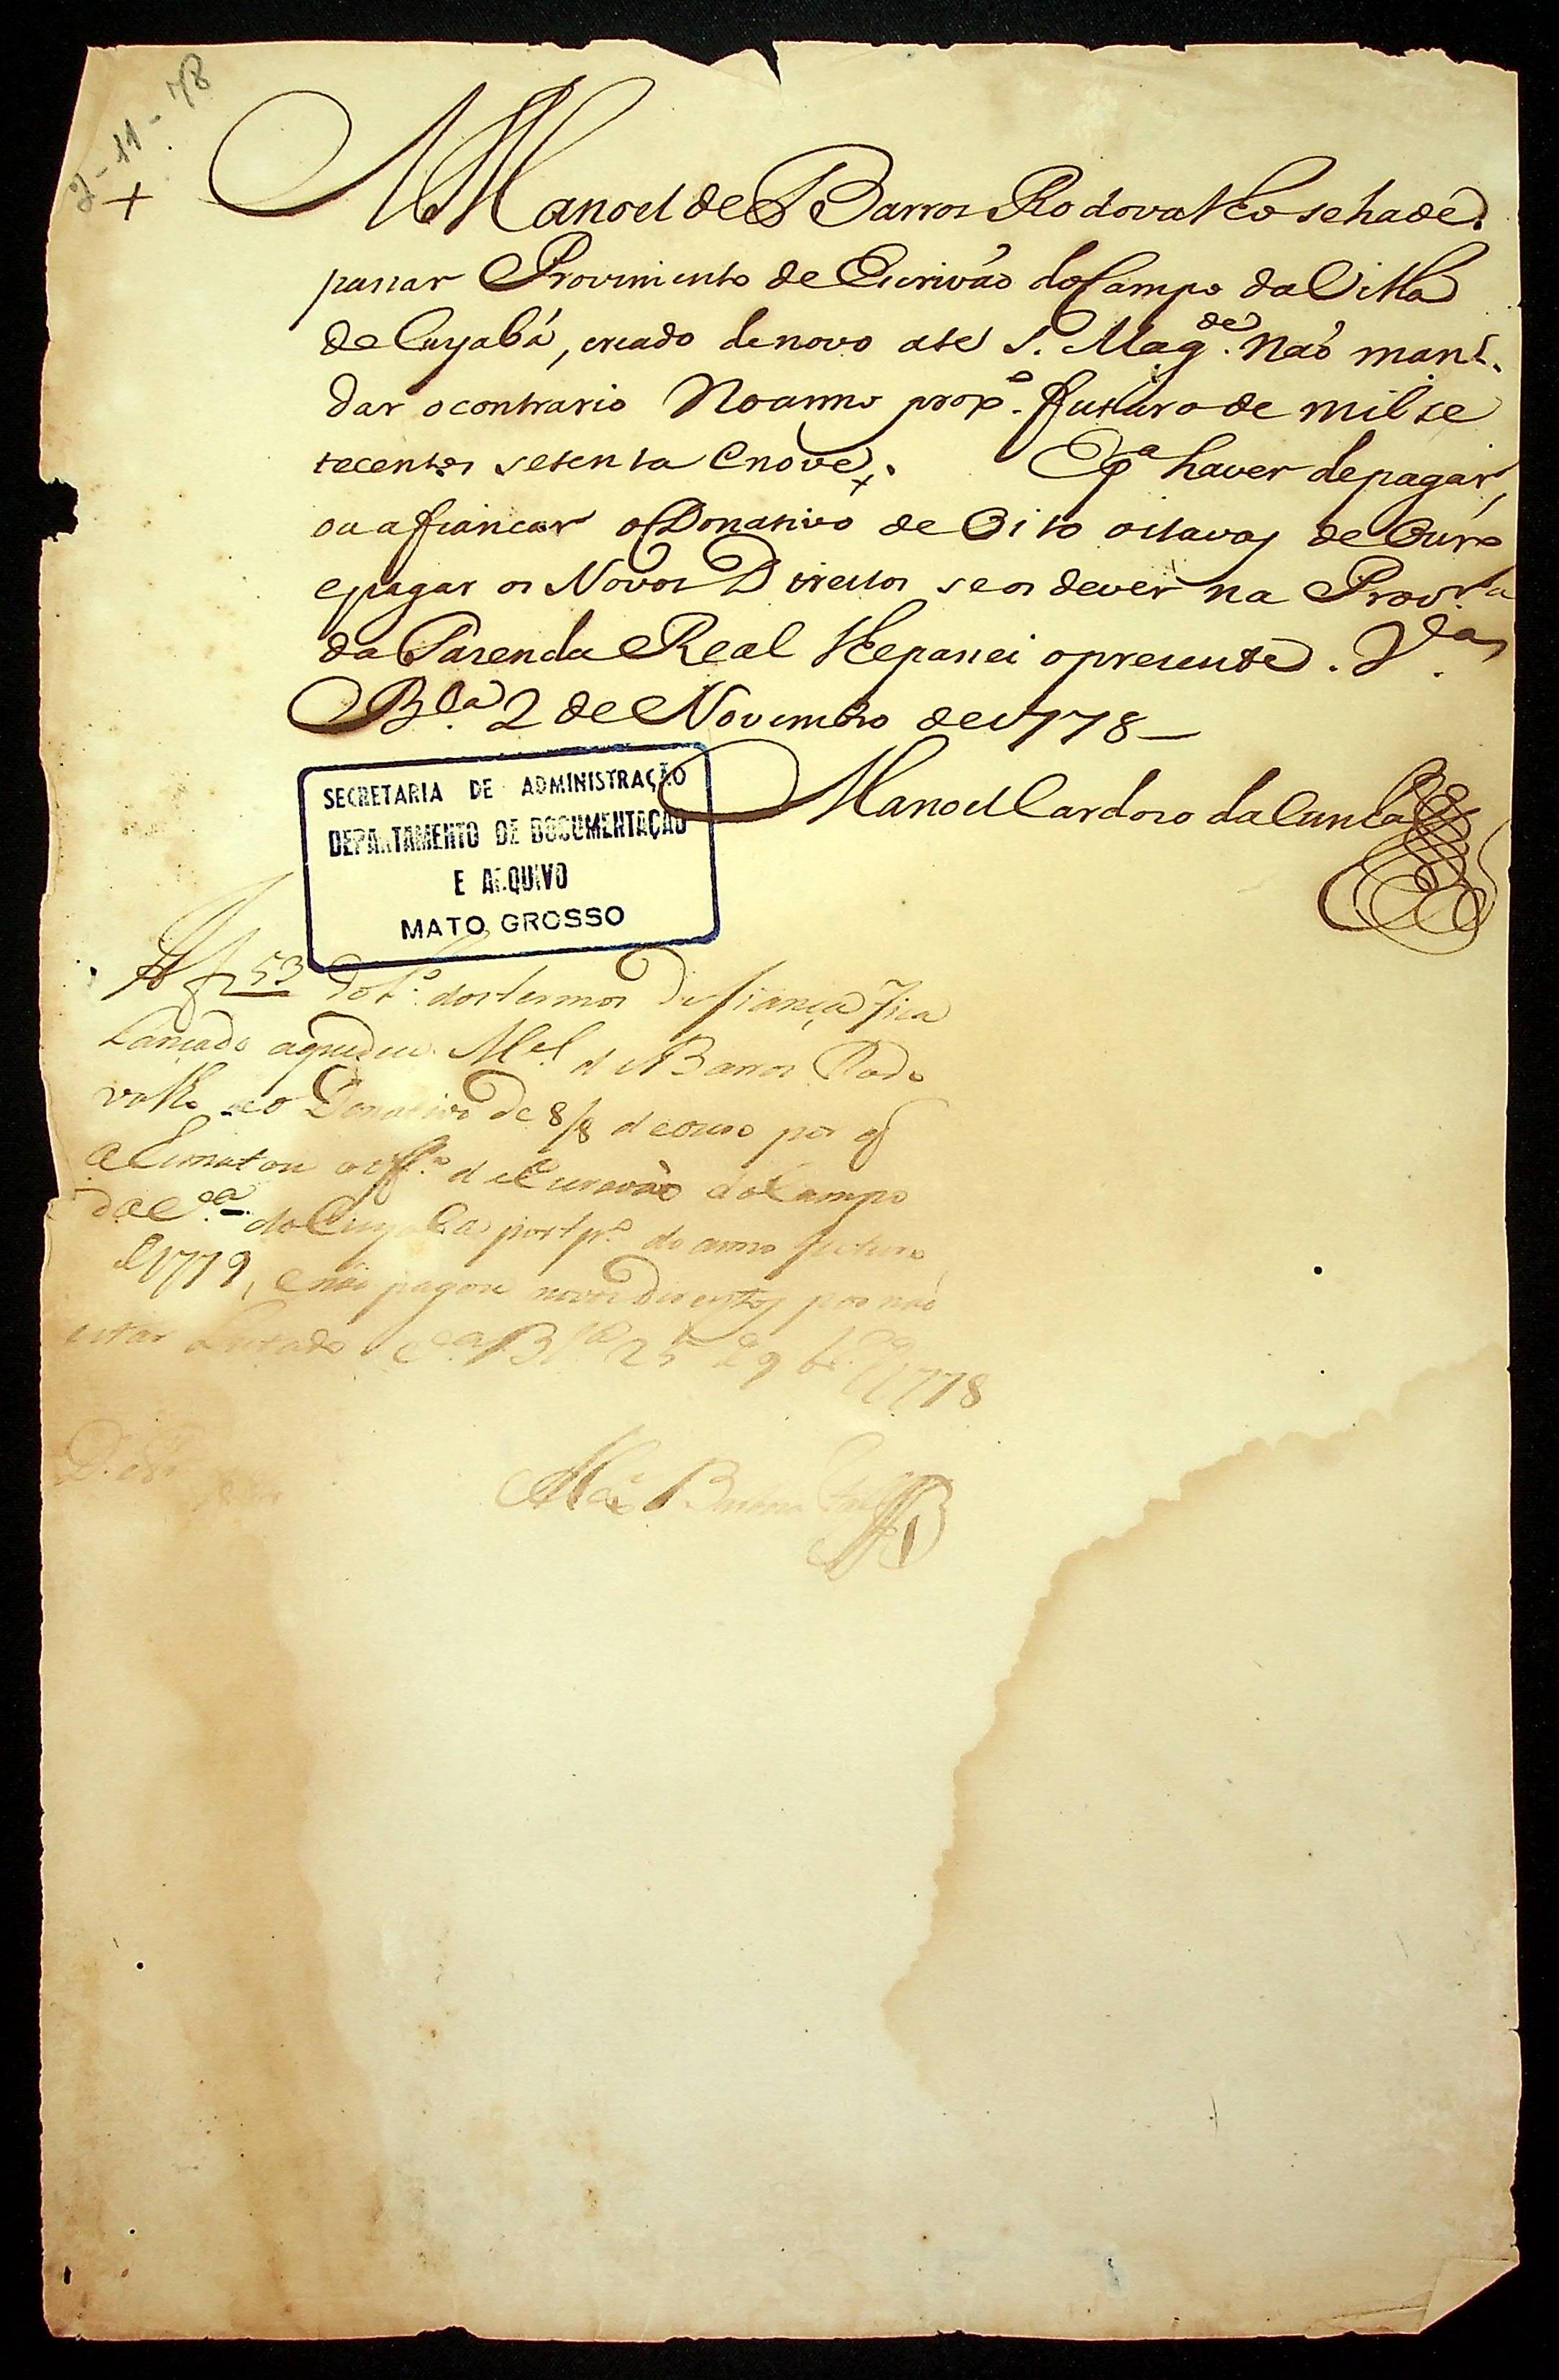 2-11-78
+
Manoel de Barros Rodovalho se ha de
passar Provimento de Escrivão do Campo da Villa
de Cuyabá, creado de novo até S. Mag.de não man-
dar o contrario No anno prox.o futuro de mil se
tecentos setenta e nove. E p.a haver de pagar,
ou afiancar o Donativo de Oito oitavas de Ouro
e pagar os Novos Direitos se os dever na Prov.ra
da Fazenda Real lhe passei o presente. V.a
B.la 2 de Novembro de 1778
Manoel Cardozo da Cunha
SECRETARIA DE ADMINISTRAÇÃO
DEPARTAMENTO DE DOCUMENTAÇÃO
E ARQUIVO
MATO GROSSO
A f 53 do L.o dos termos de fiança fica
Lançado a que deu M.el de Barros Rodo
valho ao Donativo de 8/8 de ouro por q
aRematou o off.o de Escrivão do Campo
da V.a do Cuyaba por tp.o do anno futuro
de 1779, e não pagou novos direytos por não
estar Lutado V.a B.la 25 de 9br.o de 1778